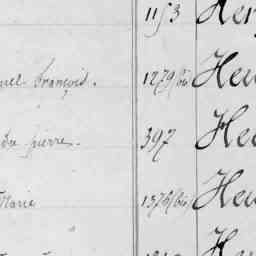 1153 Her
nuel françois. 1279 bis Heu
dré pierre. 397 Hec
Marie 1376 bis Heu